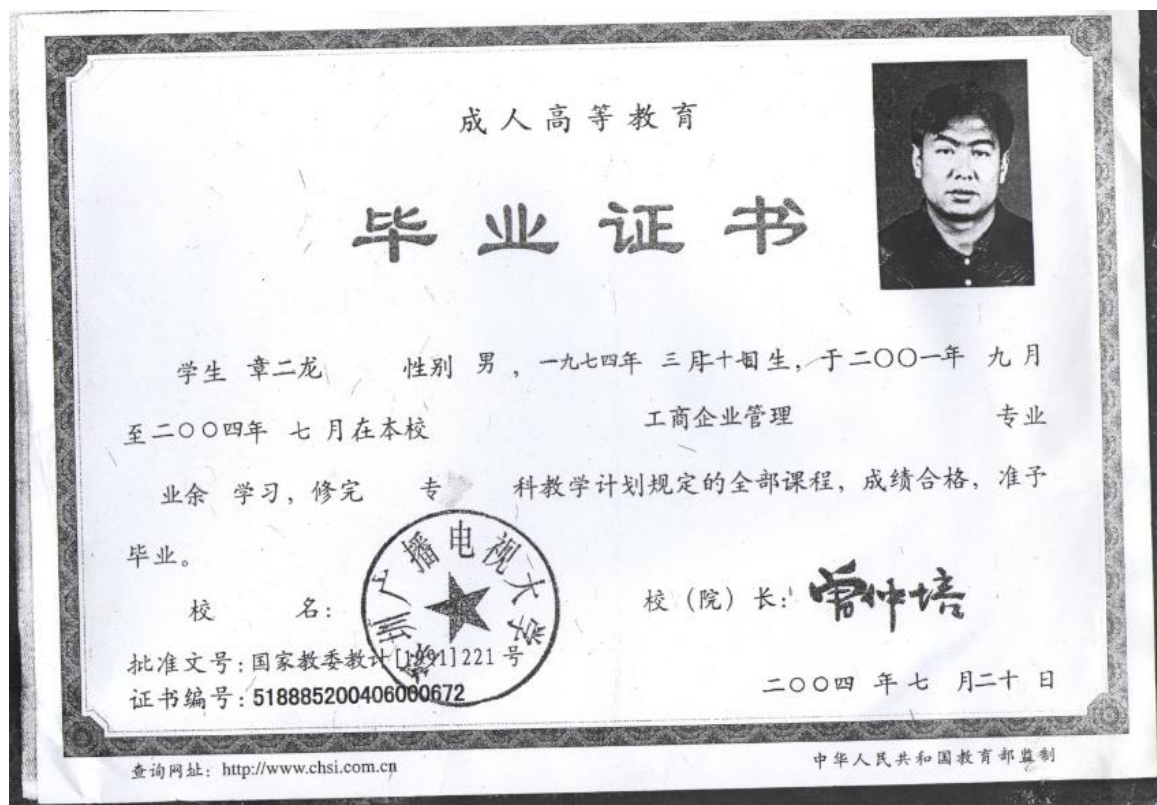 成人高等教育
毕业证书
学生 章二龙 性别 男 ，一九七四年 三月十 日生，于二〇〇一年 九月
至二〇〇四年 七月在本校 工商企业管理 专业
业余 学习，修完 专 科教学计划规定的全部课程，成绩合格，准予
毕业。
深圳广播电视大学
校 名：
校（院）长：
批准文号：国家教委教计[1991]221 号
证书编号：518885200406000672
二〇〇四 年 七 月二十 日
查询网址：http://www.chsi.com.cn
中华人民共和国教育部监制